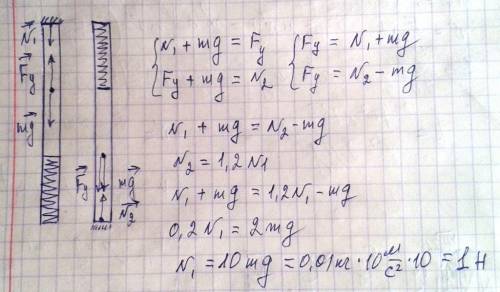 N₁
Fy
mg
Fy
mg
N₂
{ N₁ + mg = Fy
{ Fy + mg = N₂
{ Fy = N₁ + mg
{ Fy = N₂ - mg
N₁ + mg = N₂ - mg
N₂ = 1,2 N1
N₁ + mg = 1,2N₁ - mg
0,2 N₁ = 2 mg
N₁ = 10 mg = 0,01 кг · 10 м/с² · 10 = 1 Н